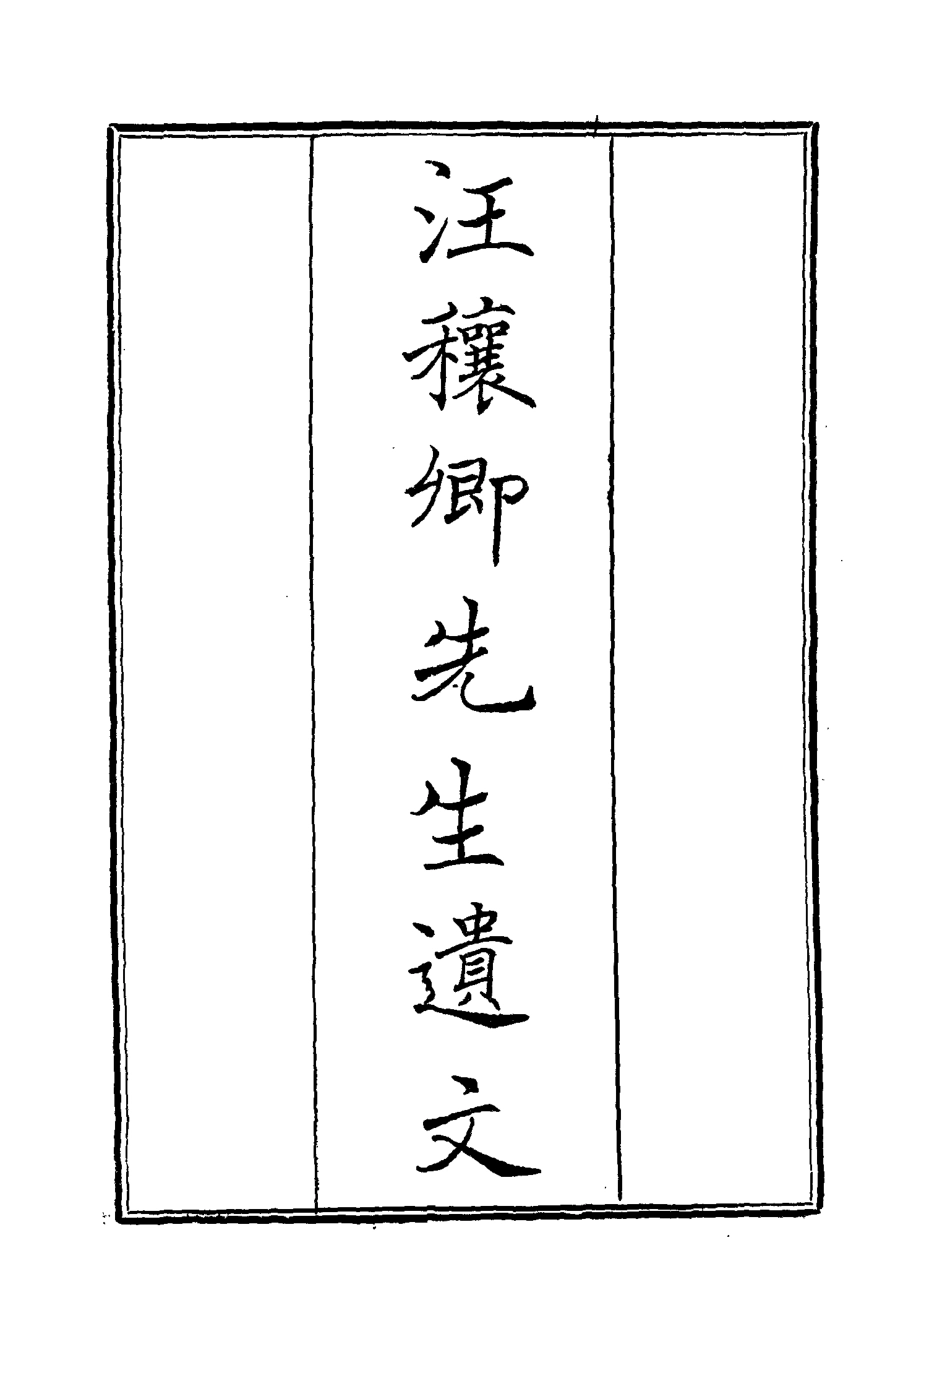 汪穰卿先生遺文